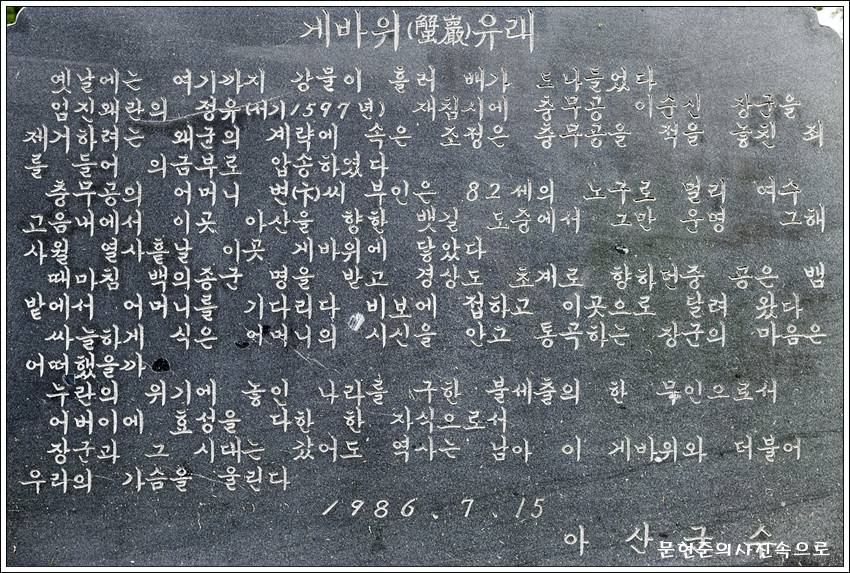 게바위(蟹巖)유래
옛날에는 여기까지 강물이 흘러 배가 드나들었다
임진왜란의 정유(서기1597년) 재침시에 충무공 이순신 장군을
제거하려는 왜군의 계략에 속은 조정은 충무공을 적을 놓친 죄
를 들어 의금부로 압송하였다
충무공의 어머니 변(卞)씨 부인은 82세의 노구로 멀리 여수
고음내에서 이곳 아산을 향한 뱃길 도중에서 그만 운명 그해
사월 열사흩날 이곳 게바위에 닿았다
때마침 백의종군 명을 받고 경상도 초계로 향하던중 공은 뱀
밭에서 어머니를 기다리다 비보에 접하고 이곳으로 달려 왔다
싸늘하게 식은 어머니의 시신을 안고 통곡하는 장군의 마음은
어떠했을까
누란의 위기에 놓인 나라를 구한 불세출의 한 무인으로서
어버이에 효성을 다한 한 자식으로서
장군과 그 시대는 갔어도 역사는 남아 이 게바위와 더불어
우리의 가슴을 울린다
1986. 7. 15
아산군수
문헌준의사진속으로